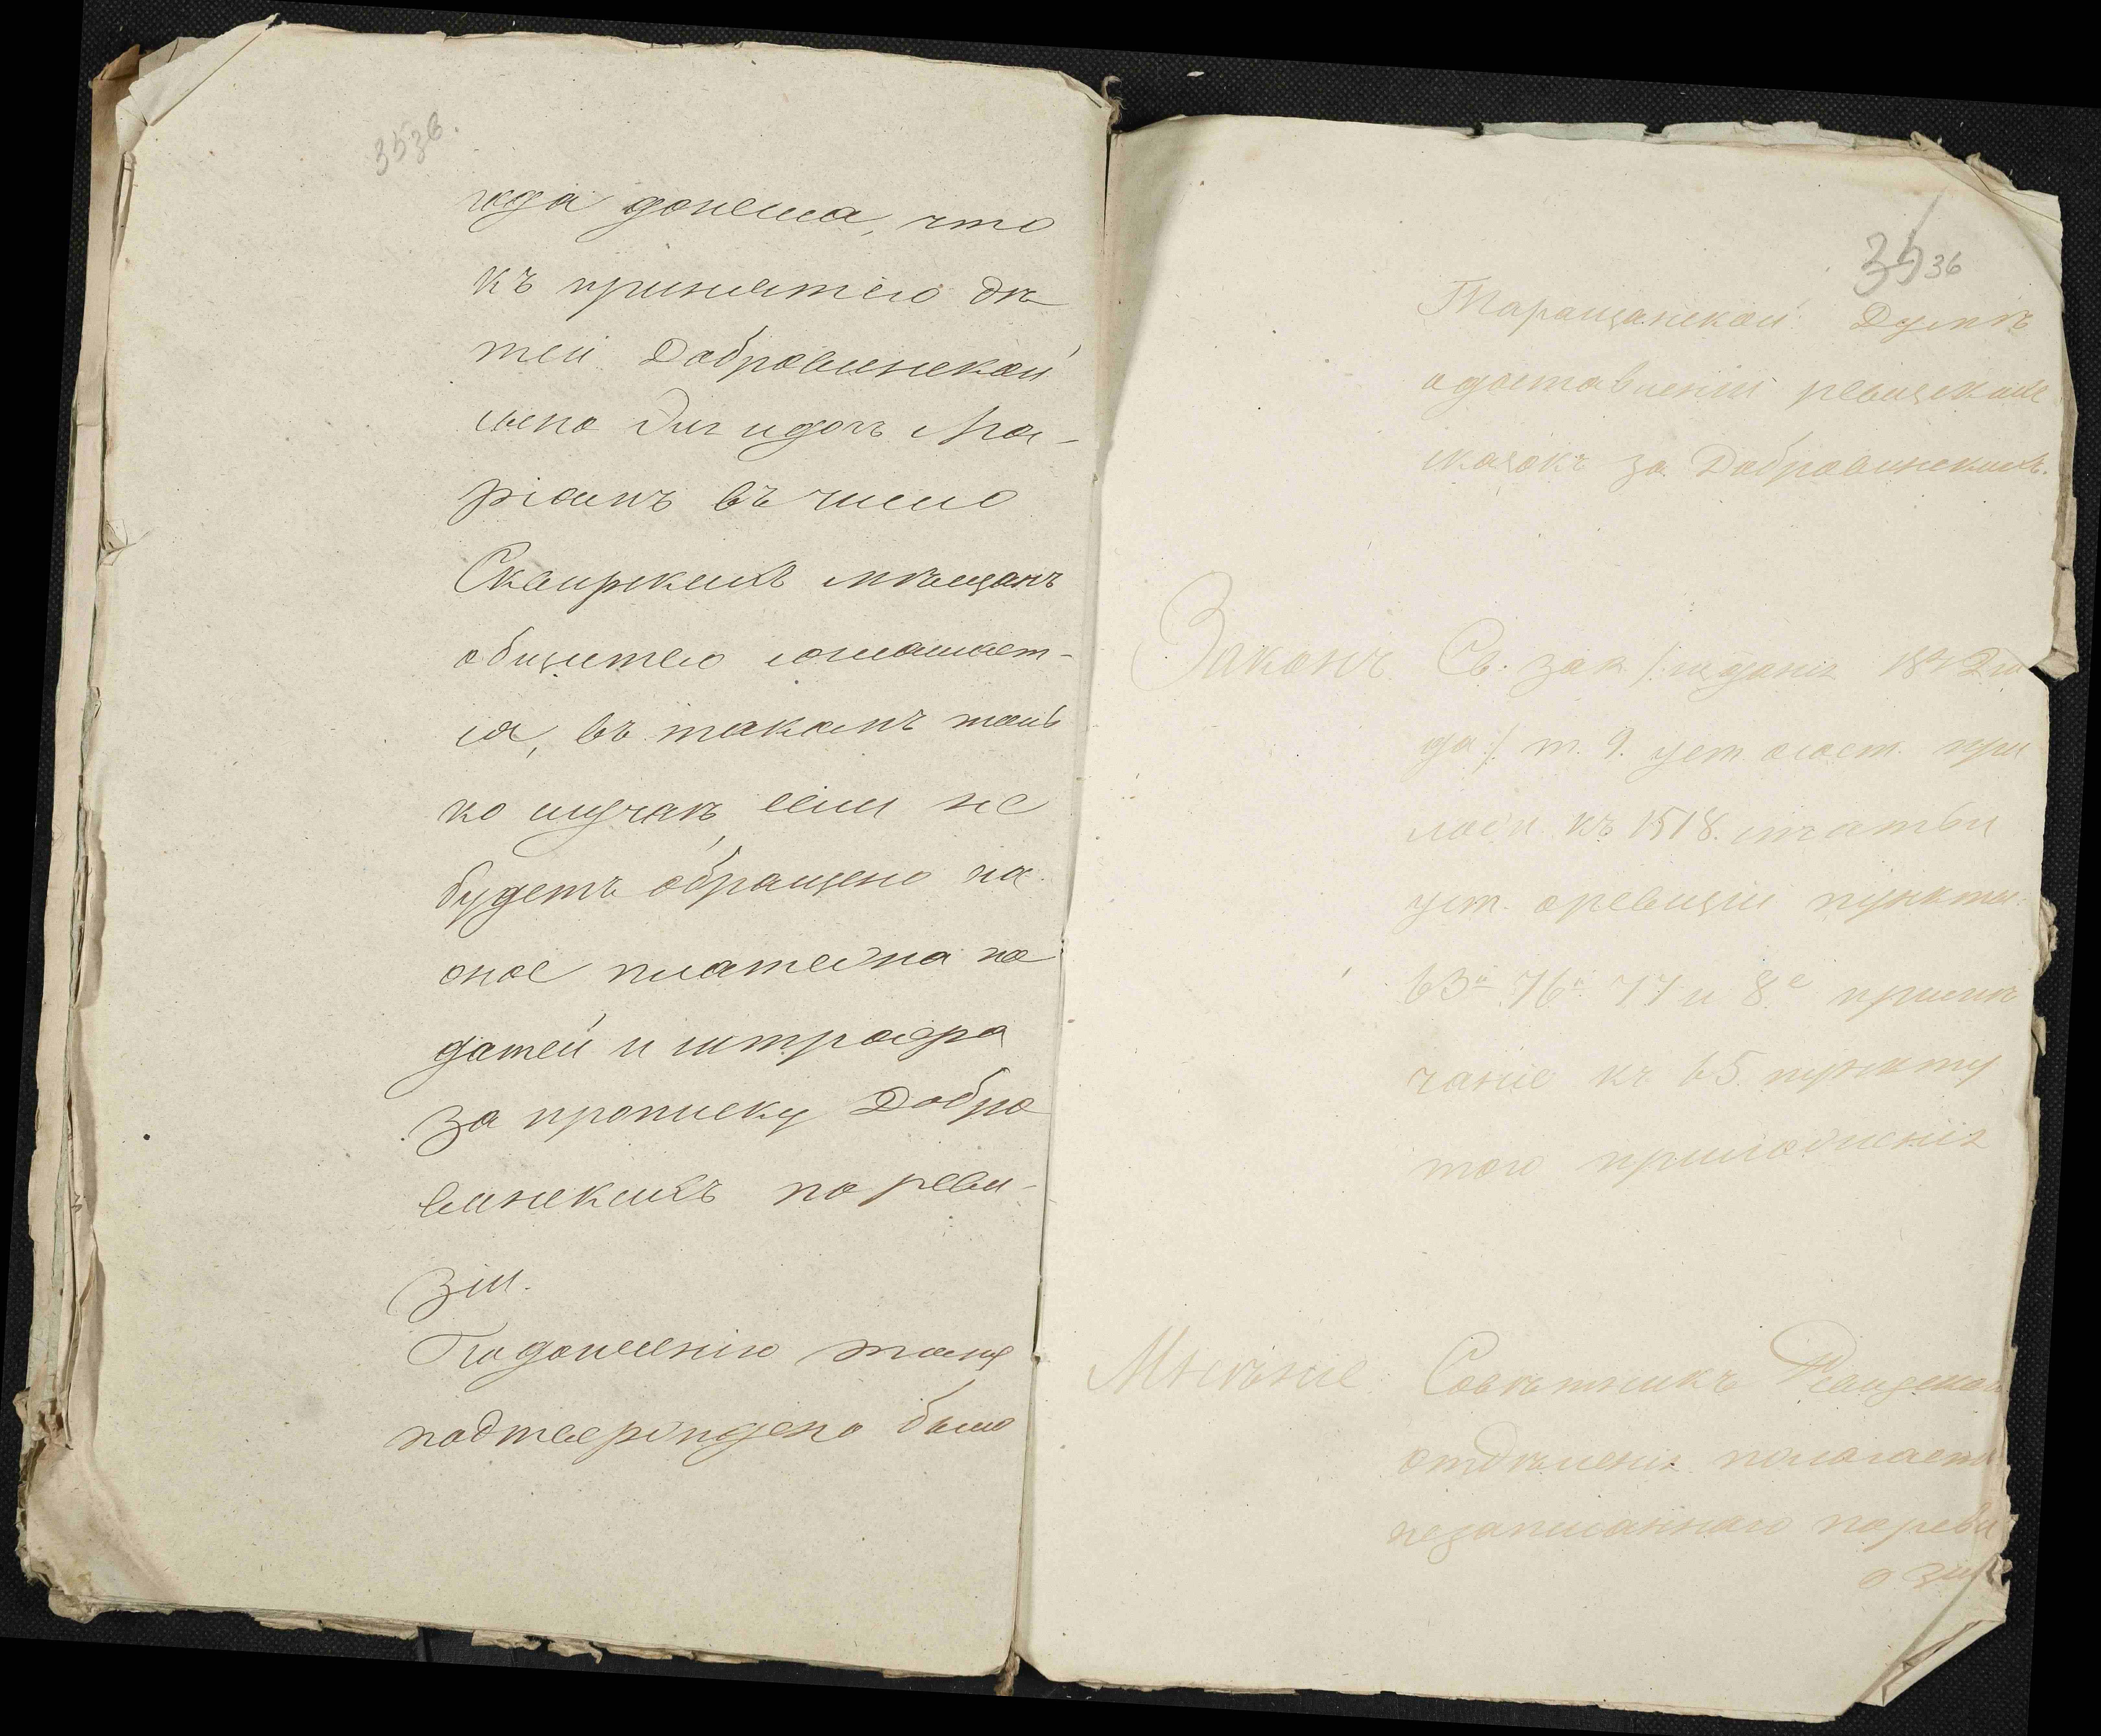 3536.
года донесла, что
къ принятію дѣ
тей Добровинской
сына и дочь Ма-
ріамъ въ число
Сквирскихъ мѣщанъ
общество соглашает-
ся, въ такомъ толь
ко случаѣ, если не
будетъ обращено на
оное платежа по
датей и штрафа
за прописку Добро
винскихъ по реви-
зіи.
По донесенію этому
подтверждено было
35 36
Таращанской Думѣ
о доставленіи ревизскихъ
сказокъ за Добровинскихъ.
Законъ. Св. зак. /: изданія 1842 го
да :/ т. 9. уст. о сост. при
лож. къ 1518. статьи
уст. о ревизіи пункты:
63й 76й 77 и 8е примѣ
чаніе къ 65. пункту
того приложенія
Мнѣніе: Совѣтникъ Ревизскаго
отдѣленія полагаетъ
незаписаннаго по реви
зіи